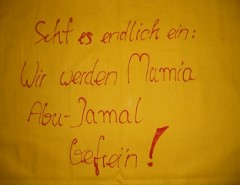 Seht es endlich ein:
Wir werden Mumia
Abu-Jamal
befrei'n!